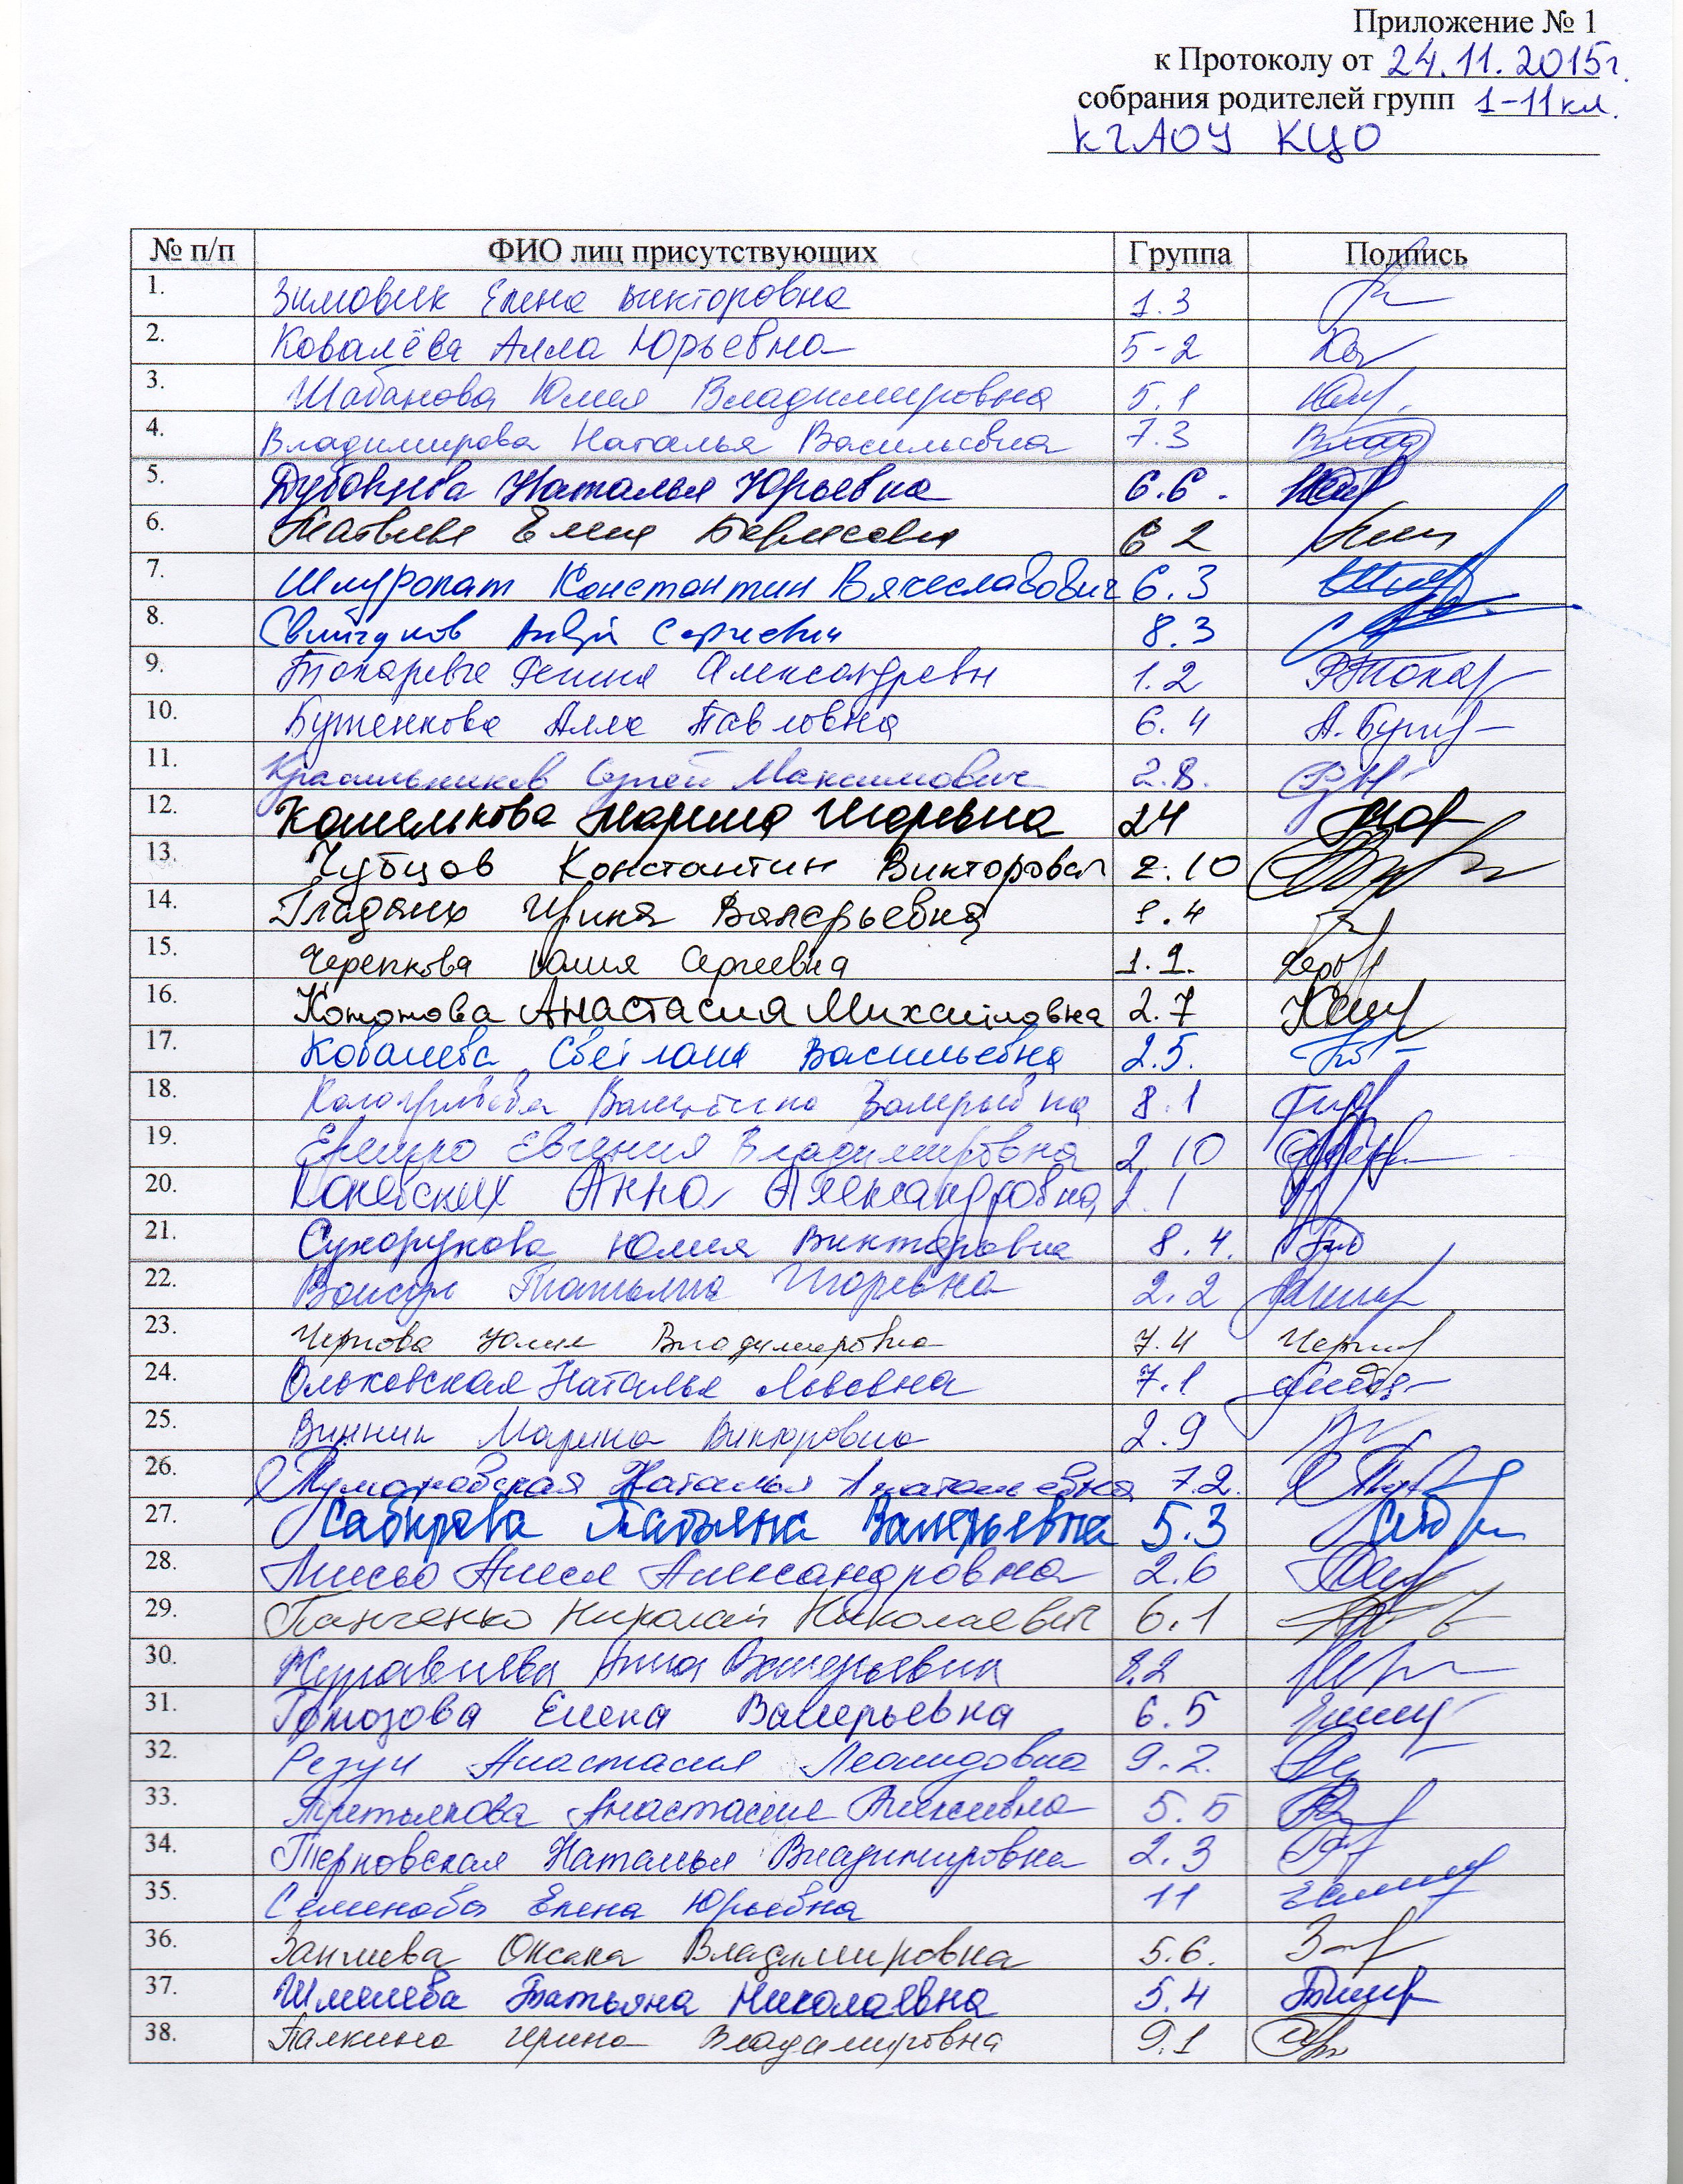 Приложение № 1
к Протоколу от 24.11.2015г.
собрания родителей групп 1-11кл.
КГАОУ КЦО
№ п/п ФИО лиц присутствующих Группа Подпись
1. Зимовик Елена Викторовна 1.3
2. Ковалёва Алла Юрьевна 5-2
3. Шабанова Юлия Владимировна 5.1
4. Владимирова Наталья Васильевна 7.3
5. Наталья Юрьевна 6.6.
6. Елена Борисовна 6 2
7. Шкуропат Константин Вячеславович 6.3
8. Сергеевич 8.3
9. Токарева Александровн 1.2
10. Бутенкова Алла Павловна 6.4
11. Красильников Сергей Максимович 2.8.
12. Кошелькова Марина Игоревна 24
13. Чубцов Константин Викторович 2.10
14. Гладких Ирина Валерьевна 1.4
15. Черепкова Юлия Сергеевна 1.1.
16. Кононова Анастасия Михайловна 2.7
17. Ковалева Светлана Васильевна 2.5.
18. Валентина Валерьевна 8.1
19. Евгения Владимировна 2.10
20. Анна Александровна 2.1
21. Сухорукова Юлия Викторовна 8.4.
22. Татьяна Игоревна 2.2
23. Чернова Юлия Владимировна 7.4
24. Ольховская Наталья Львовна 7.1
25. Винник Марина Викторовна 2.9
26. Наталья Анатольевна 7.2.
27. Сабирова Татьяна Валерьевна 5.3
28. Александровна 2.6
29. Панченко Николай Николаевич 6.1
30. Муравьева Анна Валерьевна 8.2
31. Елена Валерьевна 6.5
32. Резун Анастасия Леонидовна 9.2.
33. Третьякова Анастасия Алексеевна 5.5
34. Терновская Наталья Владимировна 2.3
35. Семенова Елена Юрьевна 11
36. Оксана Владимировна 5.6.
37. Шмелева Татьяна Николаевна 5.4
38. Палкина Ирина Владимировна 9.1